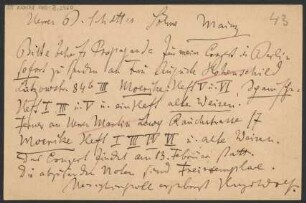 Herren B. Schott's Söhne Mainz 43
Bitte behufs Propaganda zu mein Concert in Berlin
sofort zu senden an Frl. Auguste Hohenschild
Lützowstr. 84b III Moerike Heft V u. VI. Spanisch.
Heft I III u V. u. ein Heft alte Weisen.
Ferner an Herrn Rauchstrasse 17
Moerike Heft I III IV VI u. alte Weisen.
Das Concert findet am 13. Februar statt.
Die abzusend. Noten sind Freiexemplare.
Hochachtungsvoll ergebenst Hugo Wolf.